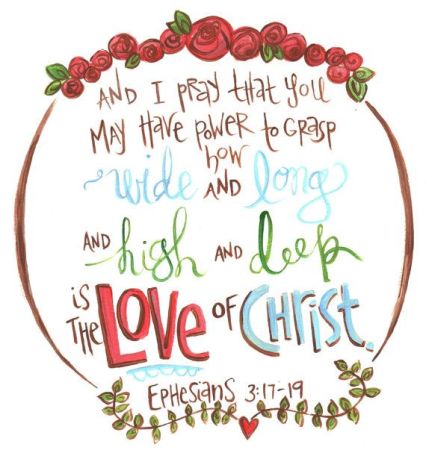 AND I PRAY that you
MAY HAVE POWER to GRASP
how
wide AND long
AND high AND deep
is THE LOVE OF CHRIST.
EPHESIANS 3:17-19